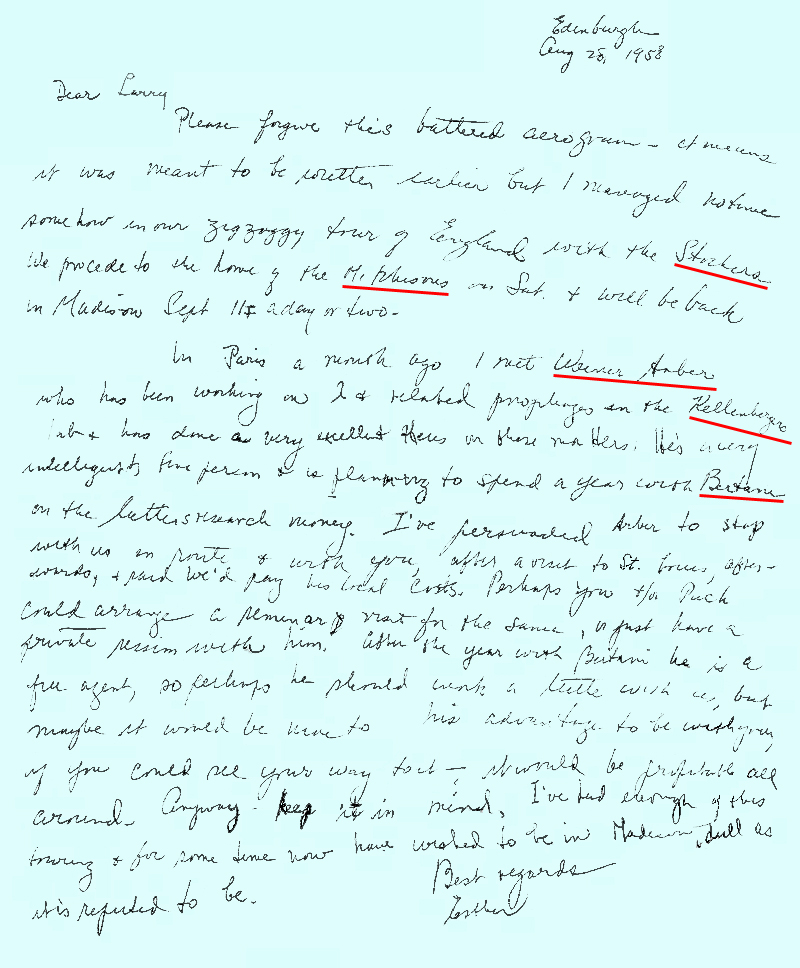 Edinburgh
Aug 28, 1958
Dear Larry
Please forgive this battered aerogram – it means
it was meant to be written earlier but I managed no time
somehow in our zigzaggy tour of England with the Stockers
We procede to the home of the on Sat. & will be back
in Madison Sept 11 ± a day or two.
In Paris a month ago I met Werner Arber
who has been working on λ & related prophages in the Kellenbergers
lab & has done a very excellent thesis on these matters. He's a very
intelligent, fine person & is planning to spend a year with Bertani
on the latters research money. I've persuaded Arber to stop
with us en route & with you, after a visit to St. Louis, after-
wards, & said we'd pay his local costs. Perhaps you &/or Puck
could arrange a seminar visit for the same, or just have a
private session with him. After the year with Bertani he is a
free agent, so perhaps he should work a little with us, but
maybe it would be more to his advantage to be with you,
if you could see your way to it – it would be profitable all
around. Anyway – keep it in mind. I've had enough of this
touring & for some time now have wished to be in Madison, dull as
it is reputed to be.
Best regards
Esther